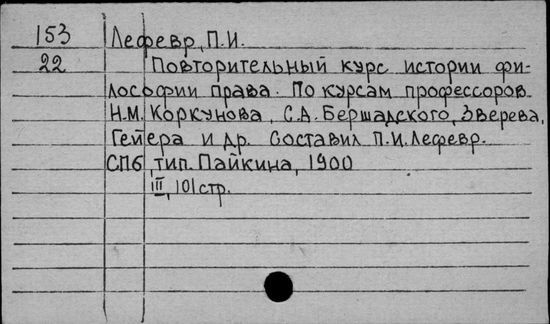 153 Лефевр, П.И.
22 Повторительный курс истории фи-
лософии права. По курсам профессоров
Н.М. Коркунова, С.А. Бершадского, Зверева,
Гейера и др. Составил П.И. Лефевр.
СПб, тип. Пайкина, 1900
III, 101 стр.